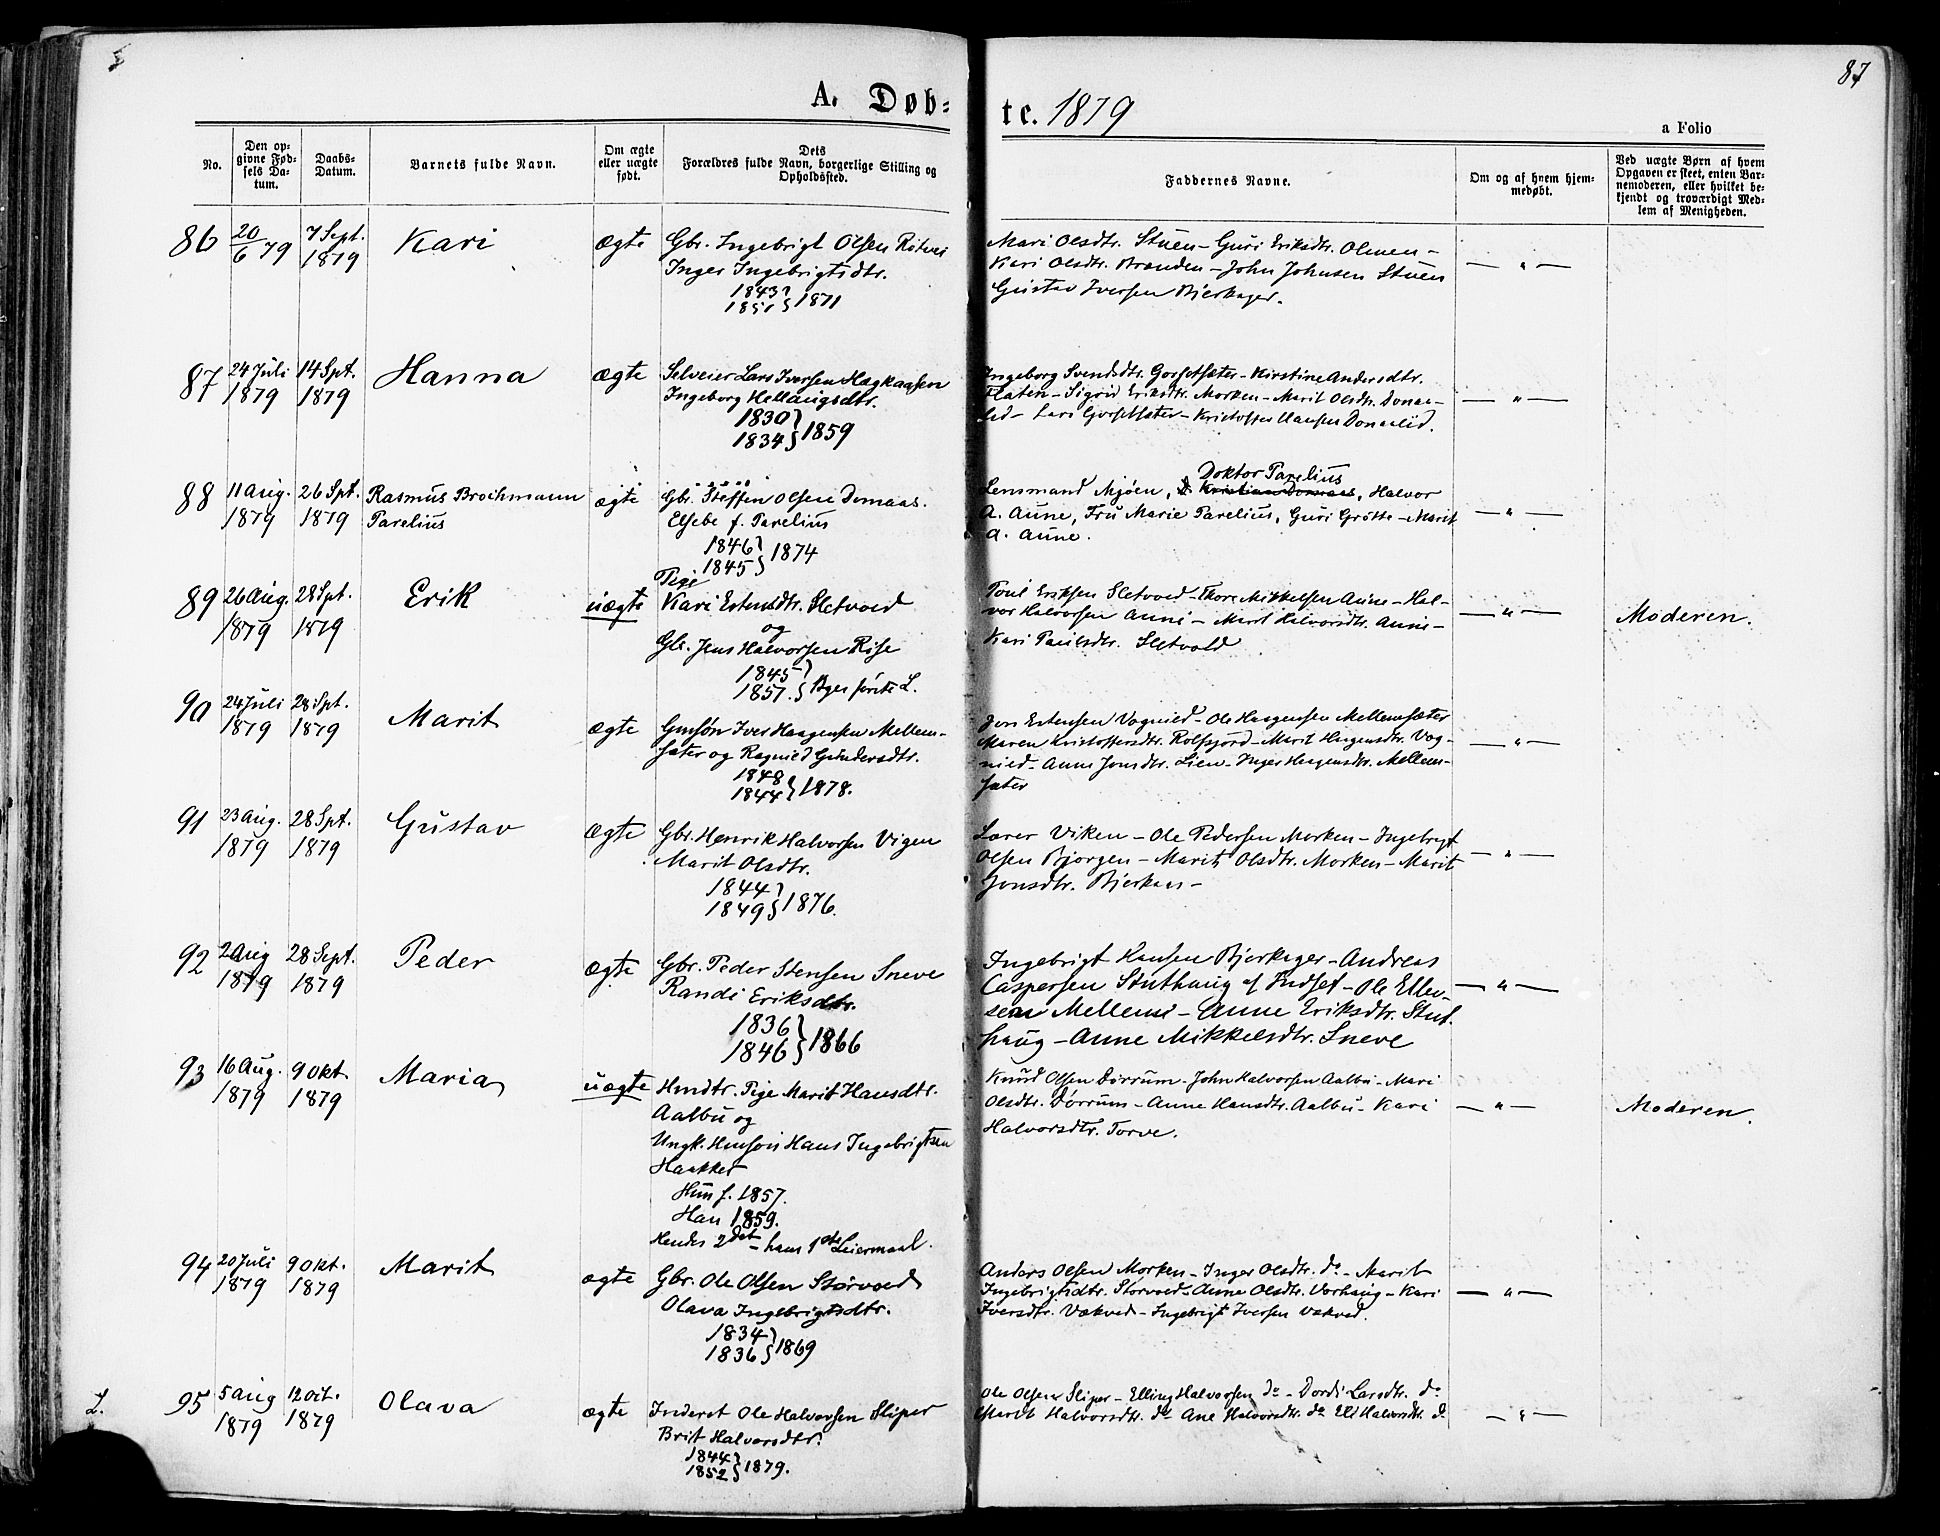 87
A. Døb-
te. 1879
a Folio
No.
Den op-
givne Fød-
sels Da-
tum.
Daabs-
Datum.
Barnets fulde Navn.
Om ægte
eller uægte
født.
Dets
Forældres fulde Navn, borgerlige Stilling og
Opholdssted.
Faddernes Navne.
Om og af hvem hjem-
medøbt.
Ved uægte Børn af hvem
Opgaven er skeet, enten Bar-
nemoderen, eller hvilket be-
kjendt og troværdigt Med-
lem af Menigheden.
86
20/6 79
7 Sept.
1879
Kari
ægte
Gbr. Ingebrigt Olsen
Inger Ingebrigtsdtr.
1843
1851 } 1871
Mari Olsdtr. Stuen - Guri Eriksdtr. Olmen -
Kari Olsdtr. Brænden - John Johnsen Stuen
Gustav Iversen Bjerkager.
— " —
87
24 Juli
1879
14 Spt.
1879
Hanna
ægte
Selveier Lars Iversen Hægkaasen
Ingeborg Hellaugsdtr.
1830
1834 } 1859
Ingeborg Svendsdtr. Gorsetsæter - Kirstine Andersdtr.
Flaten - Sigrid Eriksdtr. Morken - Marit Olsdtr. Donaa-
lid - Lars Gorsetsæter - Kristoffer Hansen Donaalid.
— " —
88
11 Aug.
1879
26 Spt.
1879
Rasmus Brochmann
Parelius
ægte
Gbr. Steffen Olsen Domaas.
Elsebe f. Parelius
1846
1845 } 1874
Doktor Parelius
Lensmand Mjøen, Kristian Domaas, Halvor
A. Aune, Fru Marie Parelius, Guri Grøtte - Marit
A. Aune.
— " —
89
26 Aug.
1879
28 Spt.
1879
Erik
uægte
Pige
Kari Estensdtr. Sletvold
og
Gbr. Jens Halvorsen Rise
1845
1857. } Begges første L.
Poul Eriksen Sletvold - Thore Mikkelsen Aune - Hal-
vor Halvorsen Aune - Marit Halvorsdtr. Aune -
Kari Paulsdtr. Sletvold
— " —
Moderen.
90
24 Juli
1879
28 Spt.
1879
Marit
ægte
Gmsøn Iver Haagensen Mellem-
sæter og Ragnild Gundersdtr.
1848
1844 } 1878.
Jon Estensen Vognild - Ole Haagensen Mellemsæter
Maren Kristoffersdtr. Rolfsjord - Marit Haagensdtr. Vog-
nild - Anne Jonsdtr. Lien - Inger Haagensdtr. Mellem-
sæter
— " —
91
23 Aug.
1879
28 Spt.
1879
Gustav
ægte
Gbr. Henrik Halvorsen Vigen
Marit Olsdtr.
1844
1849 } 1876.
Lærer Viken - Ole Pedersen Morken - Ingebrigt
Olsen Bjørgen - Marit Olsdtr. Morken - Marit
Jonsdtr. Bjerkaas -
— " —
92
2 Aug
1879
28 Sept.
1879
Peder
ægte
Gbr. Peder Stensen Sneve
Randi Eriksdtr.
1836
1846 } 1866
Ingebrigt Hansen Bjerkager - Andreas
Caspersen Stuthaug af Indset - Ole Ellev-
sen Mellemi - Anne Eriksdtr. Stut-
haug - Anne Mikkelsdtr. Sneve
— " —
93
16 Aug.
1879
9 Okt.
1879
Maria
uægte
Hmdtr. Pige Marit Hansdtr.
Aalbu og
Ungk. Hmsøn Hans Ingebrigtsen
Haakker
Hun f. 1857.
Han 1859.
Hendes 2det - hans 1ste Leiermaal.
Knud Olsen Dørrum - John Halvorsen Aalbu - Mari
Olsdtr. Dørrum - Anne Hansdtr. Aalbu - Kari
Halvorsdtr. Torve.
— " —
Moderen.
94
20 Juli
1879
9 Okt.
1879
Marit
ægte
Gbr. Ole Olsen Størvold
Olava Ingebrigtsdtr.
1834
1836 } 1869
Anders Olsen Morken - Inger Olsdtr. do - Marit
Ingebrigtsdtr. Størvold - Anne Olsdtr. Vorhaug - Kari
Iversdtr. Vækved - Ingebrigt Iversen Vækved.
— " —
L.
95
5 Aug
1879
12 Oct.
1879
Olava
ægte
Inderst Ole Halvorsen Sliper
Brit Halvorsdtr.
1844
1852 } 1879.
Ole Olsen Sliper - Elling Halvorsen do - Dordi Larsdtr. do
Marit Halvorsdtr. do Ane Halvorsdtr. do Eli Halvorsdtr. do
— " —